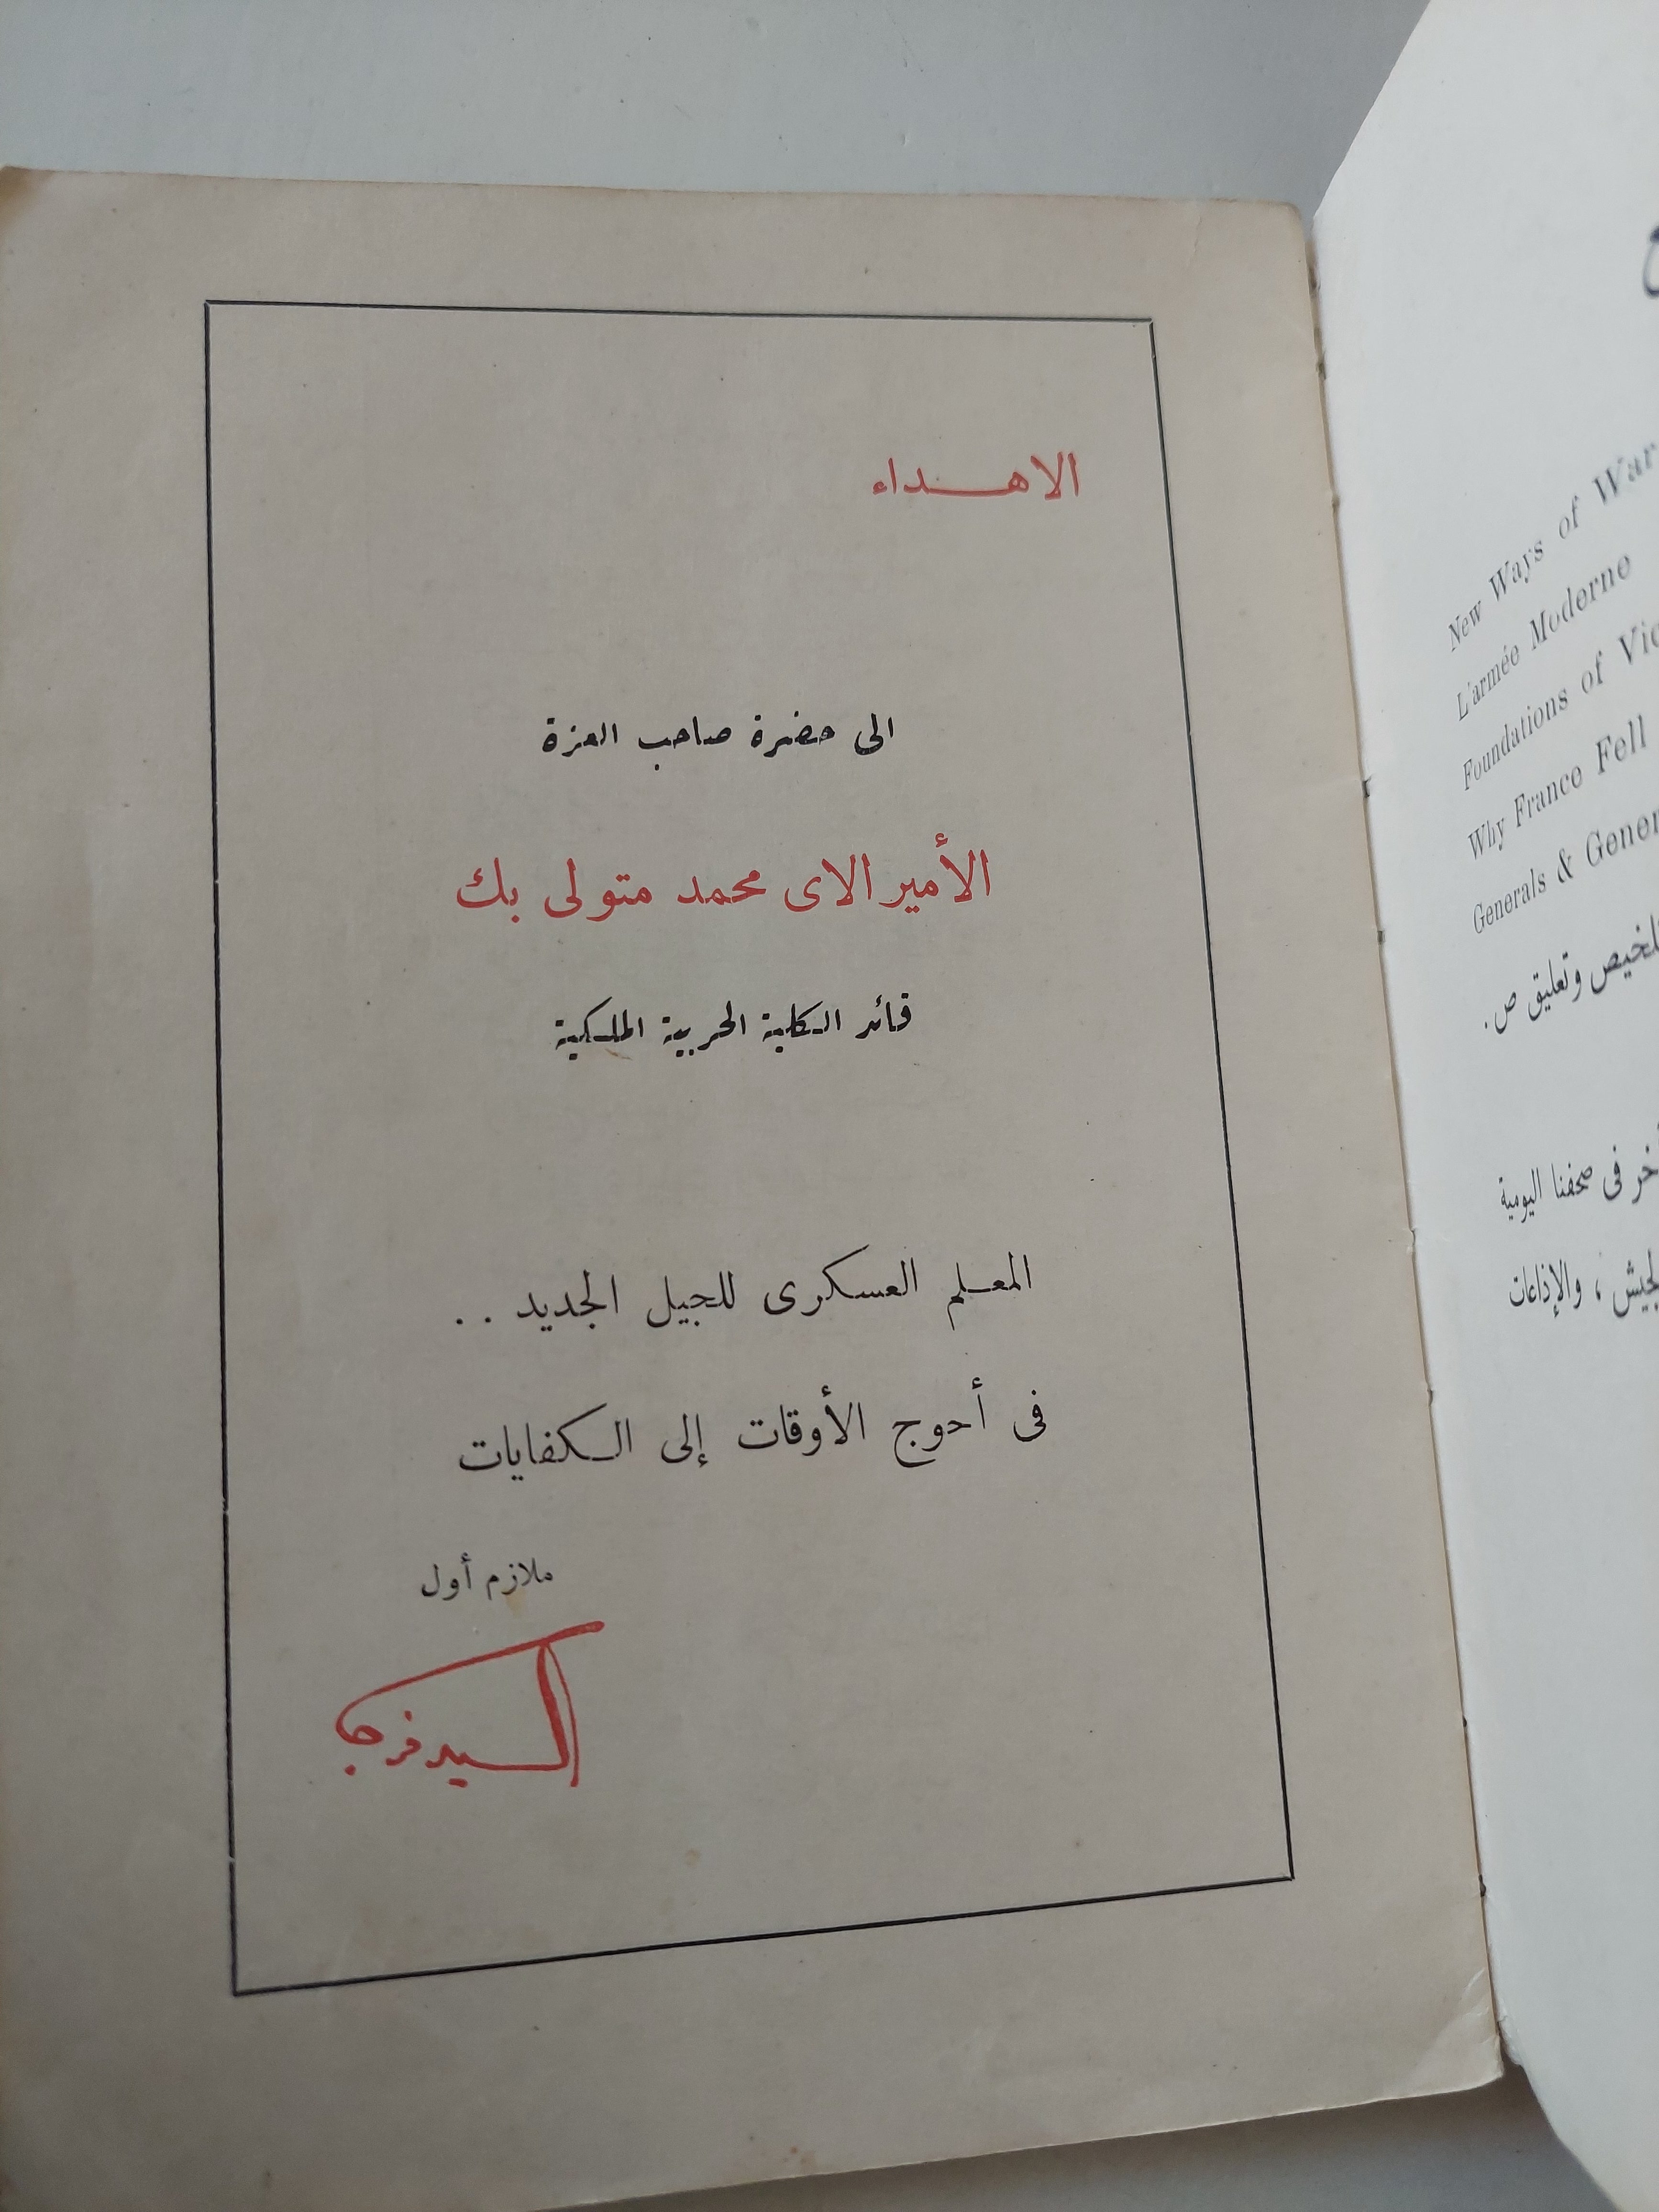 الاهداء
الى حضرة صاحب العزة
الأميرالاى محمد متولى بك
قائد الكلية الحربية الملكية
المعلم العسكرى للجيل الجديد . .
فى أحوج الأوقات إلى الكفايات
ملازم أول
السيد فرج
New Ways of War
L'armée Moderne
Foundations of
Why France Fell
Generals &
وتعليق ص .
فى صحفنا اليومية
، والإذاعات